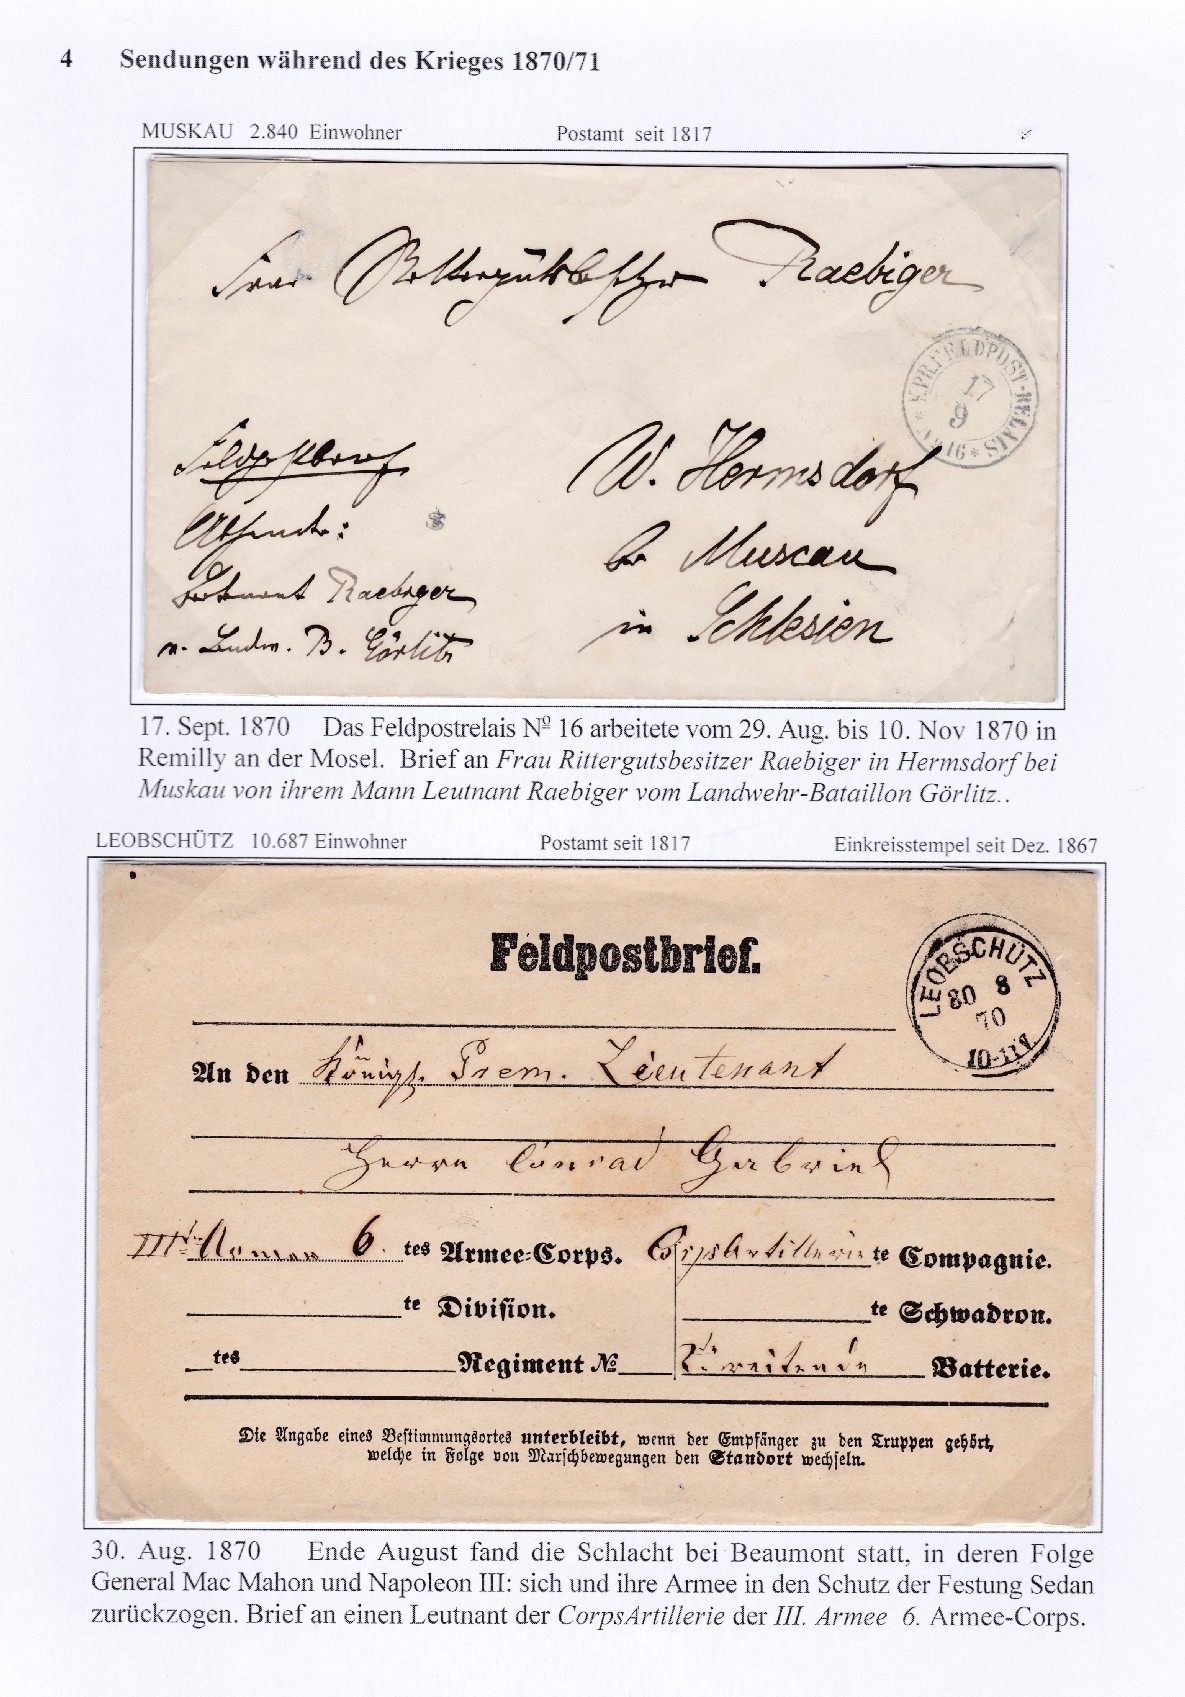 4 Sendungen während des Krieges 1870/71
MUSKAU 2.840 Einwohner Postamt seit 1817
Frau Rittergutsbesitzer Raebiger
K.PR.FELDPOST-RELAIS
17
9
N° 16
Feldpostbrief
W. Hermsdorf
Absender:
bei Muscau
Leutnant Raebiger
in Schlesien
v. Landw. B. Görlitz
17. Sept. 1870 Das Feldpostrelais Nº 16 arbeitete vom 29. Aug. bis 10. Nov 1870 in
Remilly an der Mosel. Brief an Frau Rittergutsbesitzer Raebiger in Hermsdorf bei
Muskau von ihrem Mann Leutnant Raebiger vom Landwehr-Bataillon Görlitz..
LEOBSCHÜTZ 10.687 Einwohner Postamt seit 1817 Einkreisstempel seit Dez. 1867
Feldpostbrief.
LEOBSCHÜTZ
30 8
70
10-11V
An den Königl. Prem. Lieutenant
Herrn Conrad Gabriel
IIIte Armee 6. tes Armee-Corps. CorpsArtillerie te Compagnie.
te Division. te Schwadron.
tes Regiment No reitende Batterie.
Die Angabe eines Bestimmungsortes unterbleibt, wenn der Empfänger zu den Truppen gehört,
welche in Folge von Marschbewegungen den Standort wechseln.
30. Aug. 1870 Ende August fand die Schlacht bei Beaumont statt, in deren Folge
General Mac Mahon und Napoleon III: sich und ihre Armee in den Schutz der Festung Sedan
zurückzogen. Brief an einen Leutnant der CorpsArtillerie der III. Armee 6. Armee-Corps.